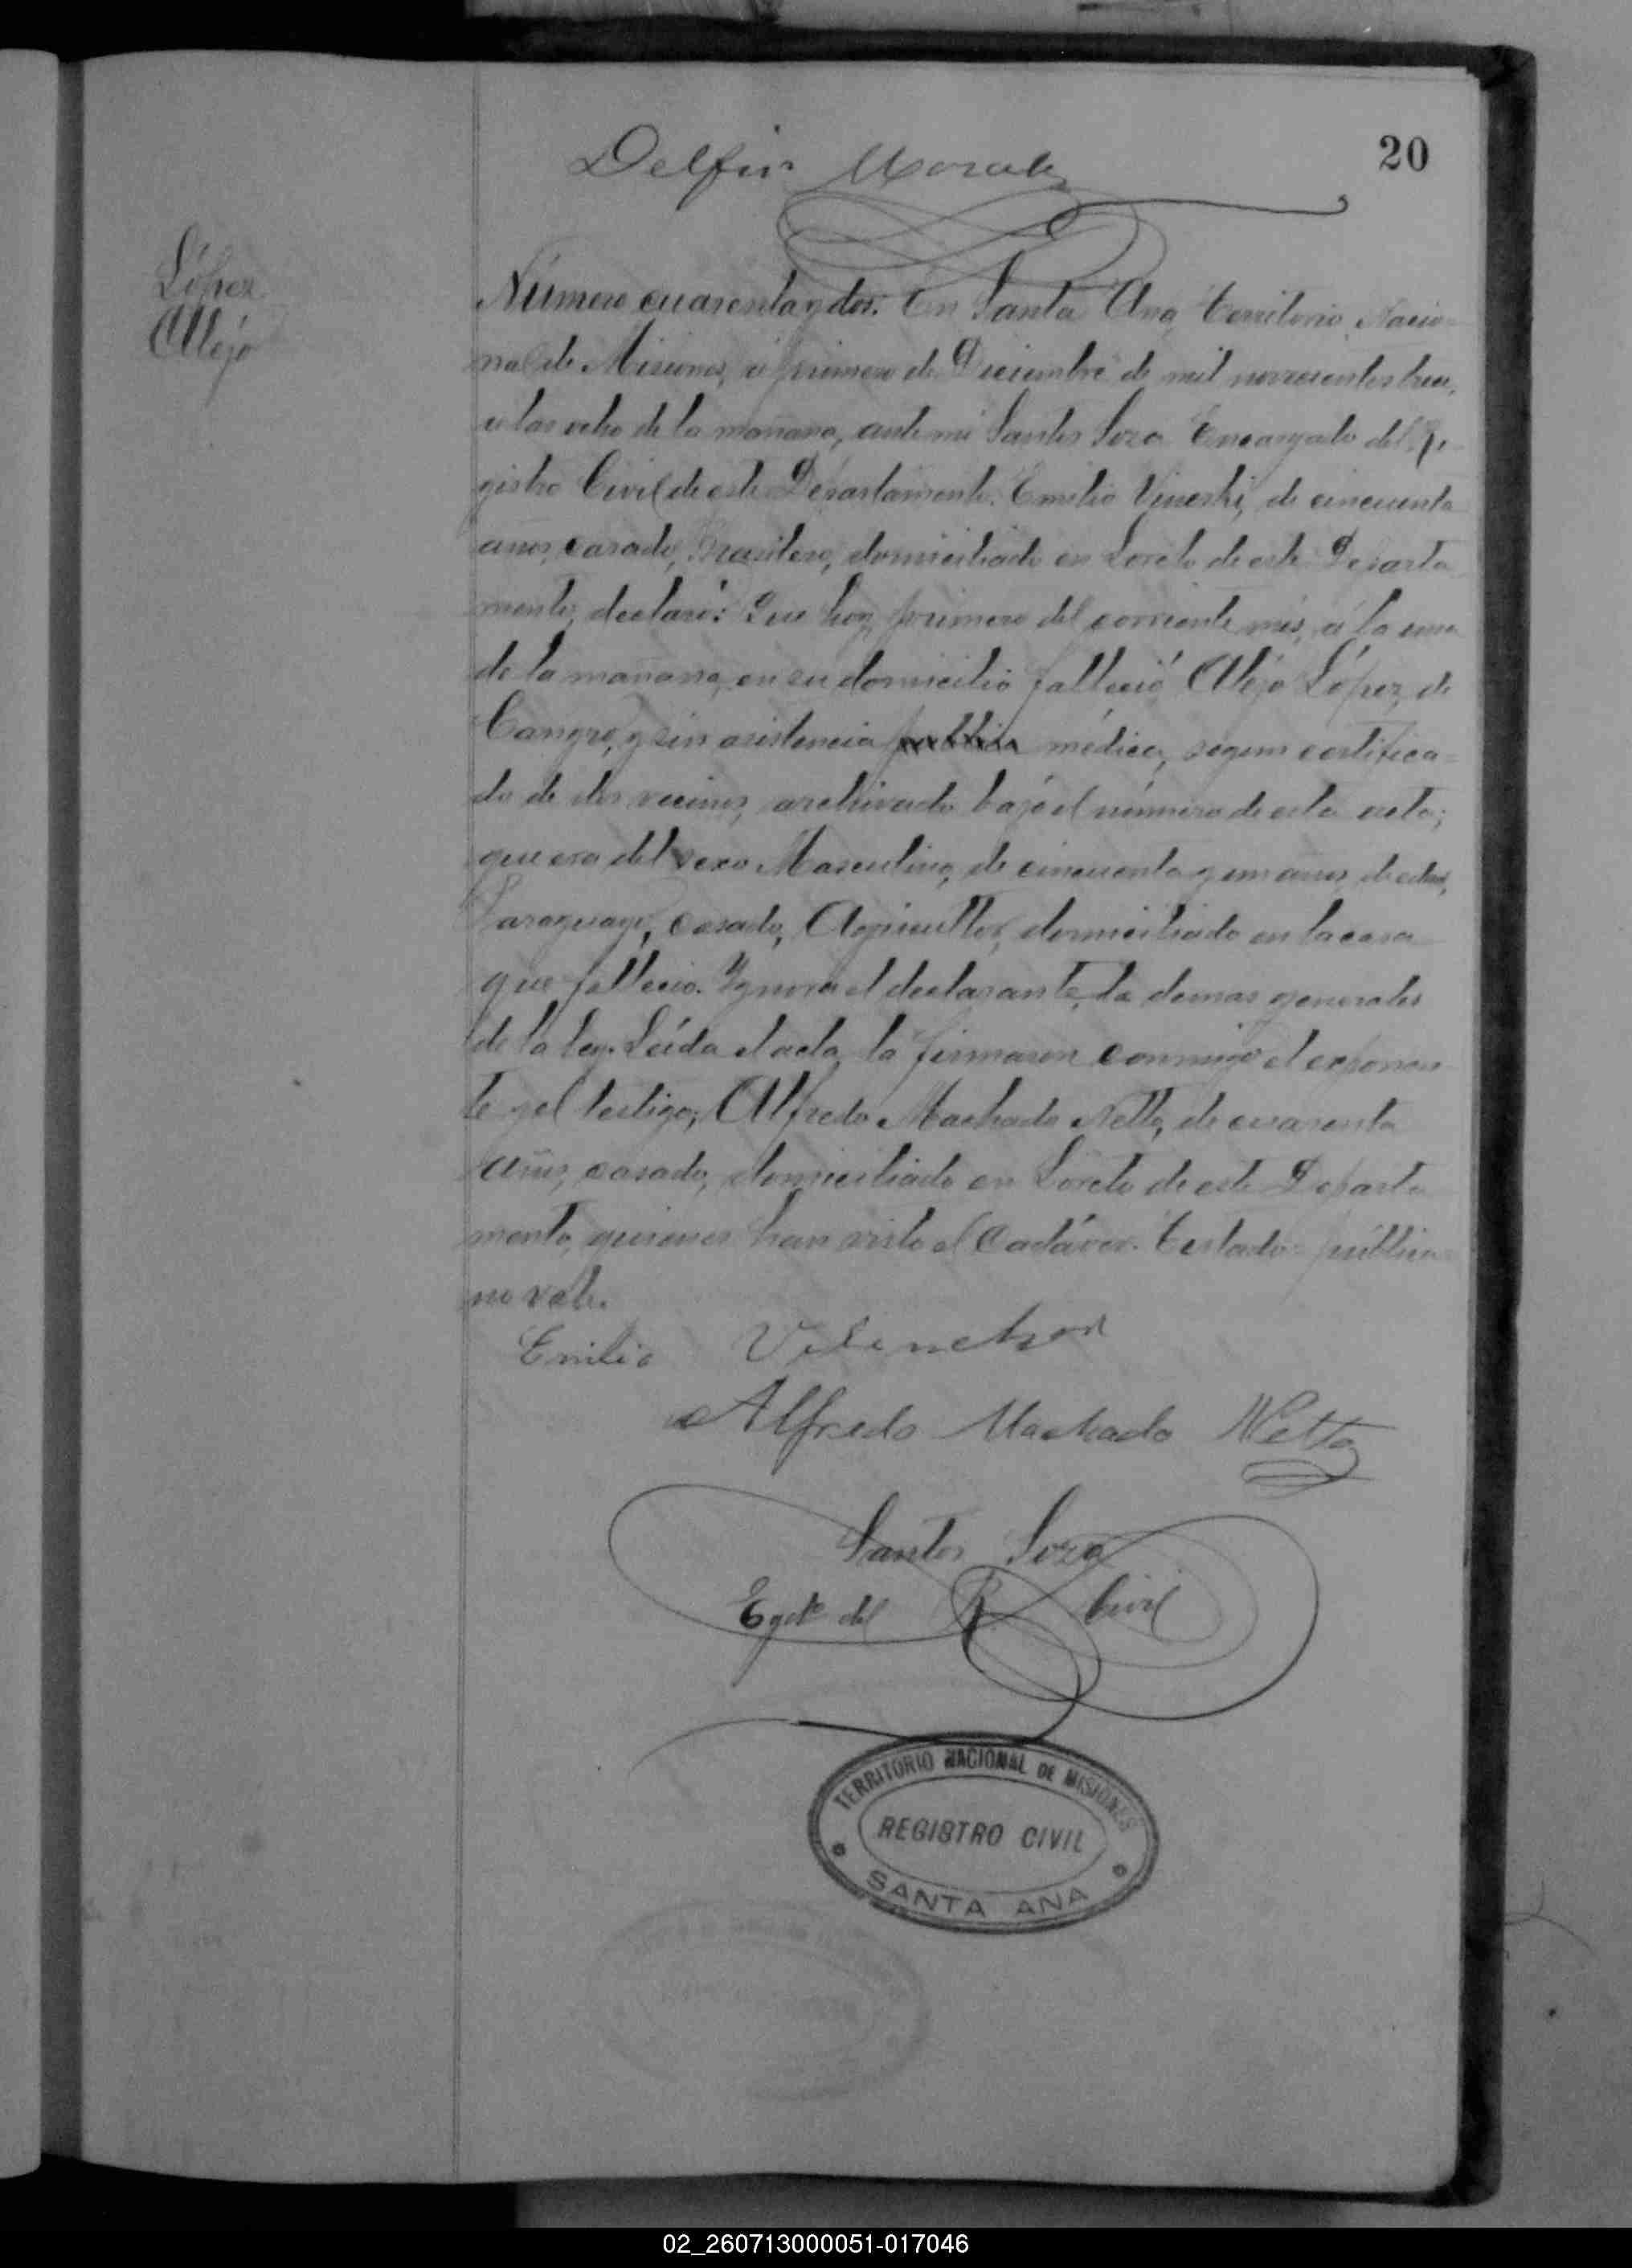 20
Delfin Morales
López
Alejo
Número cuarenta y dos: En Santa Ana, Territorio Nacio-
nal de Misiones, á primero de Diciembre de mil novecientos trece,
a las ocho de la mañana, ante mi Santos Soza Encargado del Re-
gistro Civil de este Departamento: Emilio Vineski, de cincuenta
años, casado, Brasilero, domiciliado en Loreto de este Departa
mento, declaró: Que hoy, primero del corriente més, á la una
de la mañana, en su domicilio falleció Alejo López, de
Cangro, y sin asistencia publica médica, segun certifica-
do de dos vecinos, archivado bajo el número de esta acta;
que era del sexo Masculino, de cincuenta y un años, de edad,
Paraguayo, casado, Agricultor, domiciliado en la casa
que fallecio. Ygnora el declarante, la demas generales
de la ley. Leída el acta, la firmaron conmigo el exponen-
te y el testigo; Alfredo Machado Netto, de cuarenta
años, casado, domiciliado en Loreto de este Departa
mento, quienes han visto el Cadáver. Testado: pública
no vale.
Emilio
Alfredo Machado Netto
Santos Soza
Egdo del R Civil
TERRITORIO NACIONAL DE MISIONES
REGISTRO CIVIL
SANTA ANA
02_260713000051-017046